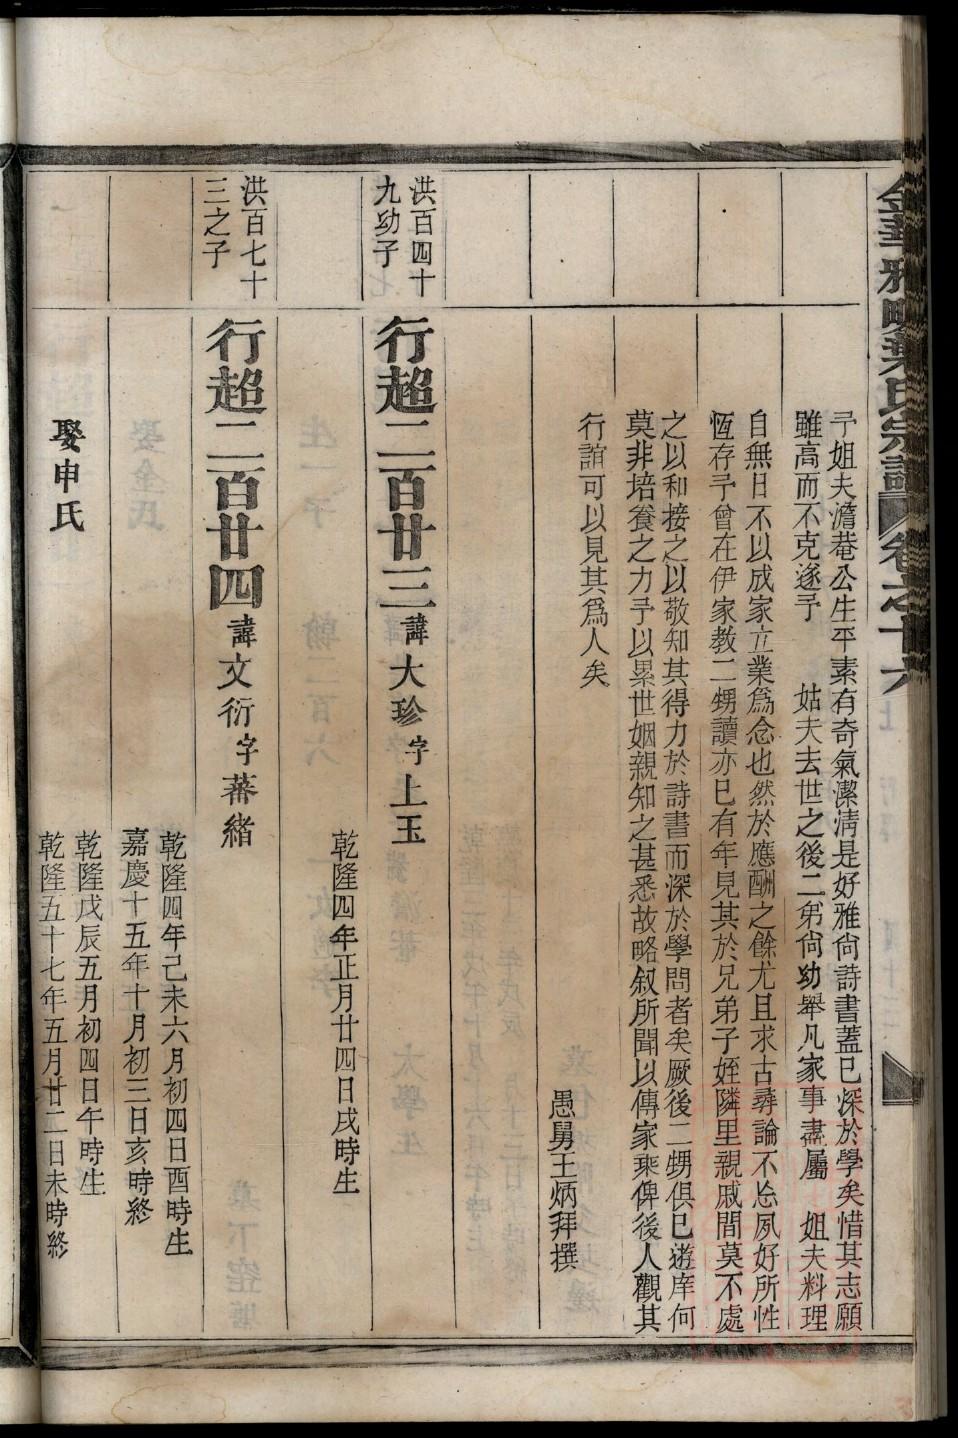 金華雅畈葉氏宗譜 卷之十六
予姐夫澹菴公生平素有奇氣潔清是好雅尙詩書蓋已深於學矣惜其志願
雖高而不克遂予 姑夫去世之後二弟尙幼舉凡家事盡屬 姐夫料理
自無日不以成家立業爲念也然於應酬之餘尤且求古尋論不忘夙好所性
恆存予曾在伊家教二甥讀亦已有年見其於兄弟子姪隣里親戚間莫不處
之以和接之以敬知其得力於詩書而深於學問者矣厥後二甥俱已遊庠何
莫非培養之力予以累世姻親知之甚悉故略叙所聞以傳家乘俾後人觀其
行誼可以見其爲人矣
愚舅王炳拜撰
洪百四十
九幼子
行超二百廿三諱大珍字上玉
乾隆四年正月廿四日戌時生
洪百七十
三之子
行超二百廿四諱文衍字蕃緒
乾隆四年己未六月初四日酉時生
嘉慶十五年十月初三日亥時終
娶申氏
乾隆戊辰五月初四日午時生
乾隆五十七年五月廿二日未時終